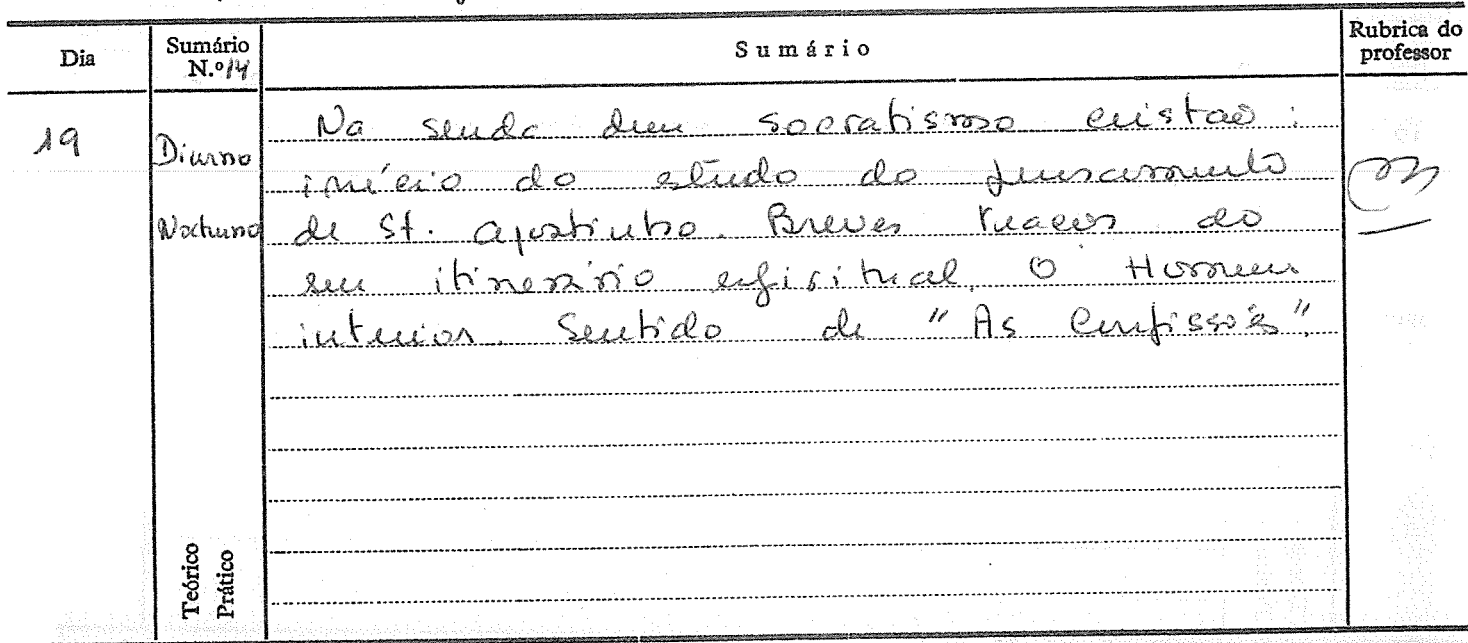 Dia
Sumário N.º 14
Sumário
Rubrica do professor
19
Diurno
Nocturno
Na senda dum socratismo cristão:
início do estudo do pensamento
de St. Agostinho. Breves traços do
seu itinerário espiritual. O Homem
interior. Sentido de "As Confissões".
Teórico
Prático